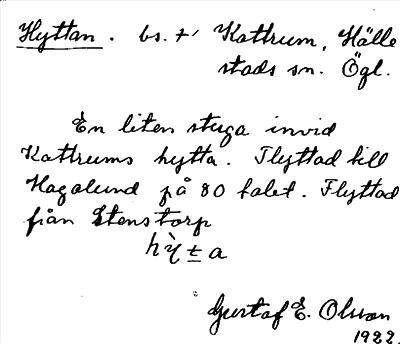 Hyttan. bs. t. Kattrum, Hälle
stads sn. Ögl.
En liten stuga invid
Kattrums hytta. Flyttad till
Hagalund på 80 talet. Flyttad
från Stenstorp
Gustaf E. Olsson
1922.